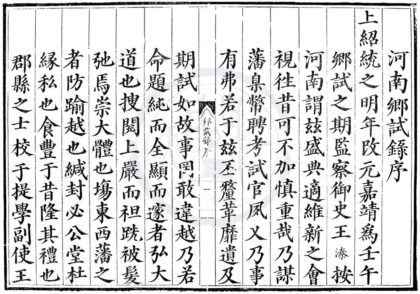 河南鄉試錄序
上紹統之明年改元嘉靖為壬午
鄉試之期監察御史王溱按
河南謂茲盛典適維新之會
視徃昔可不加慎重哉乃謀
藩臬幣聘考試官夙乂乃事
有弗若于茲丕釐革靡遺及
鄉試錄序 一
期試如故事罔敢違越乃若
命題純而全顯而邃者弘大
道也搜閱上嚴而袒跣被髮
弛焉崇大體也塲東西藩之
者防踰越也緘封必公堂杜
緣私也食豐于昔隆其禮也
郡縣之士校于提學副使王